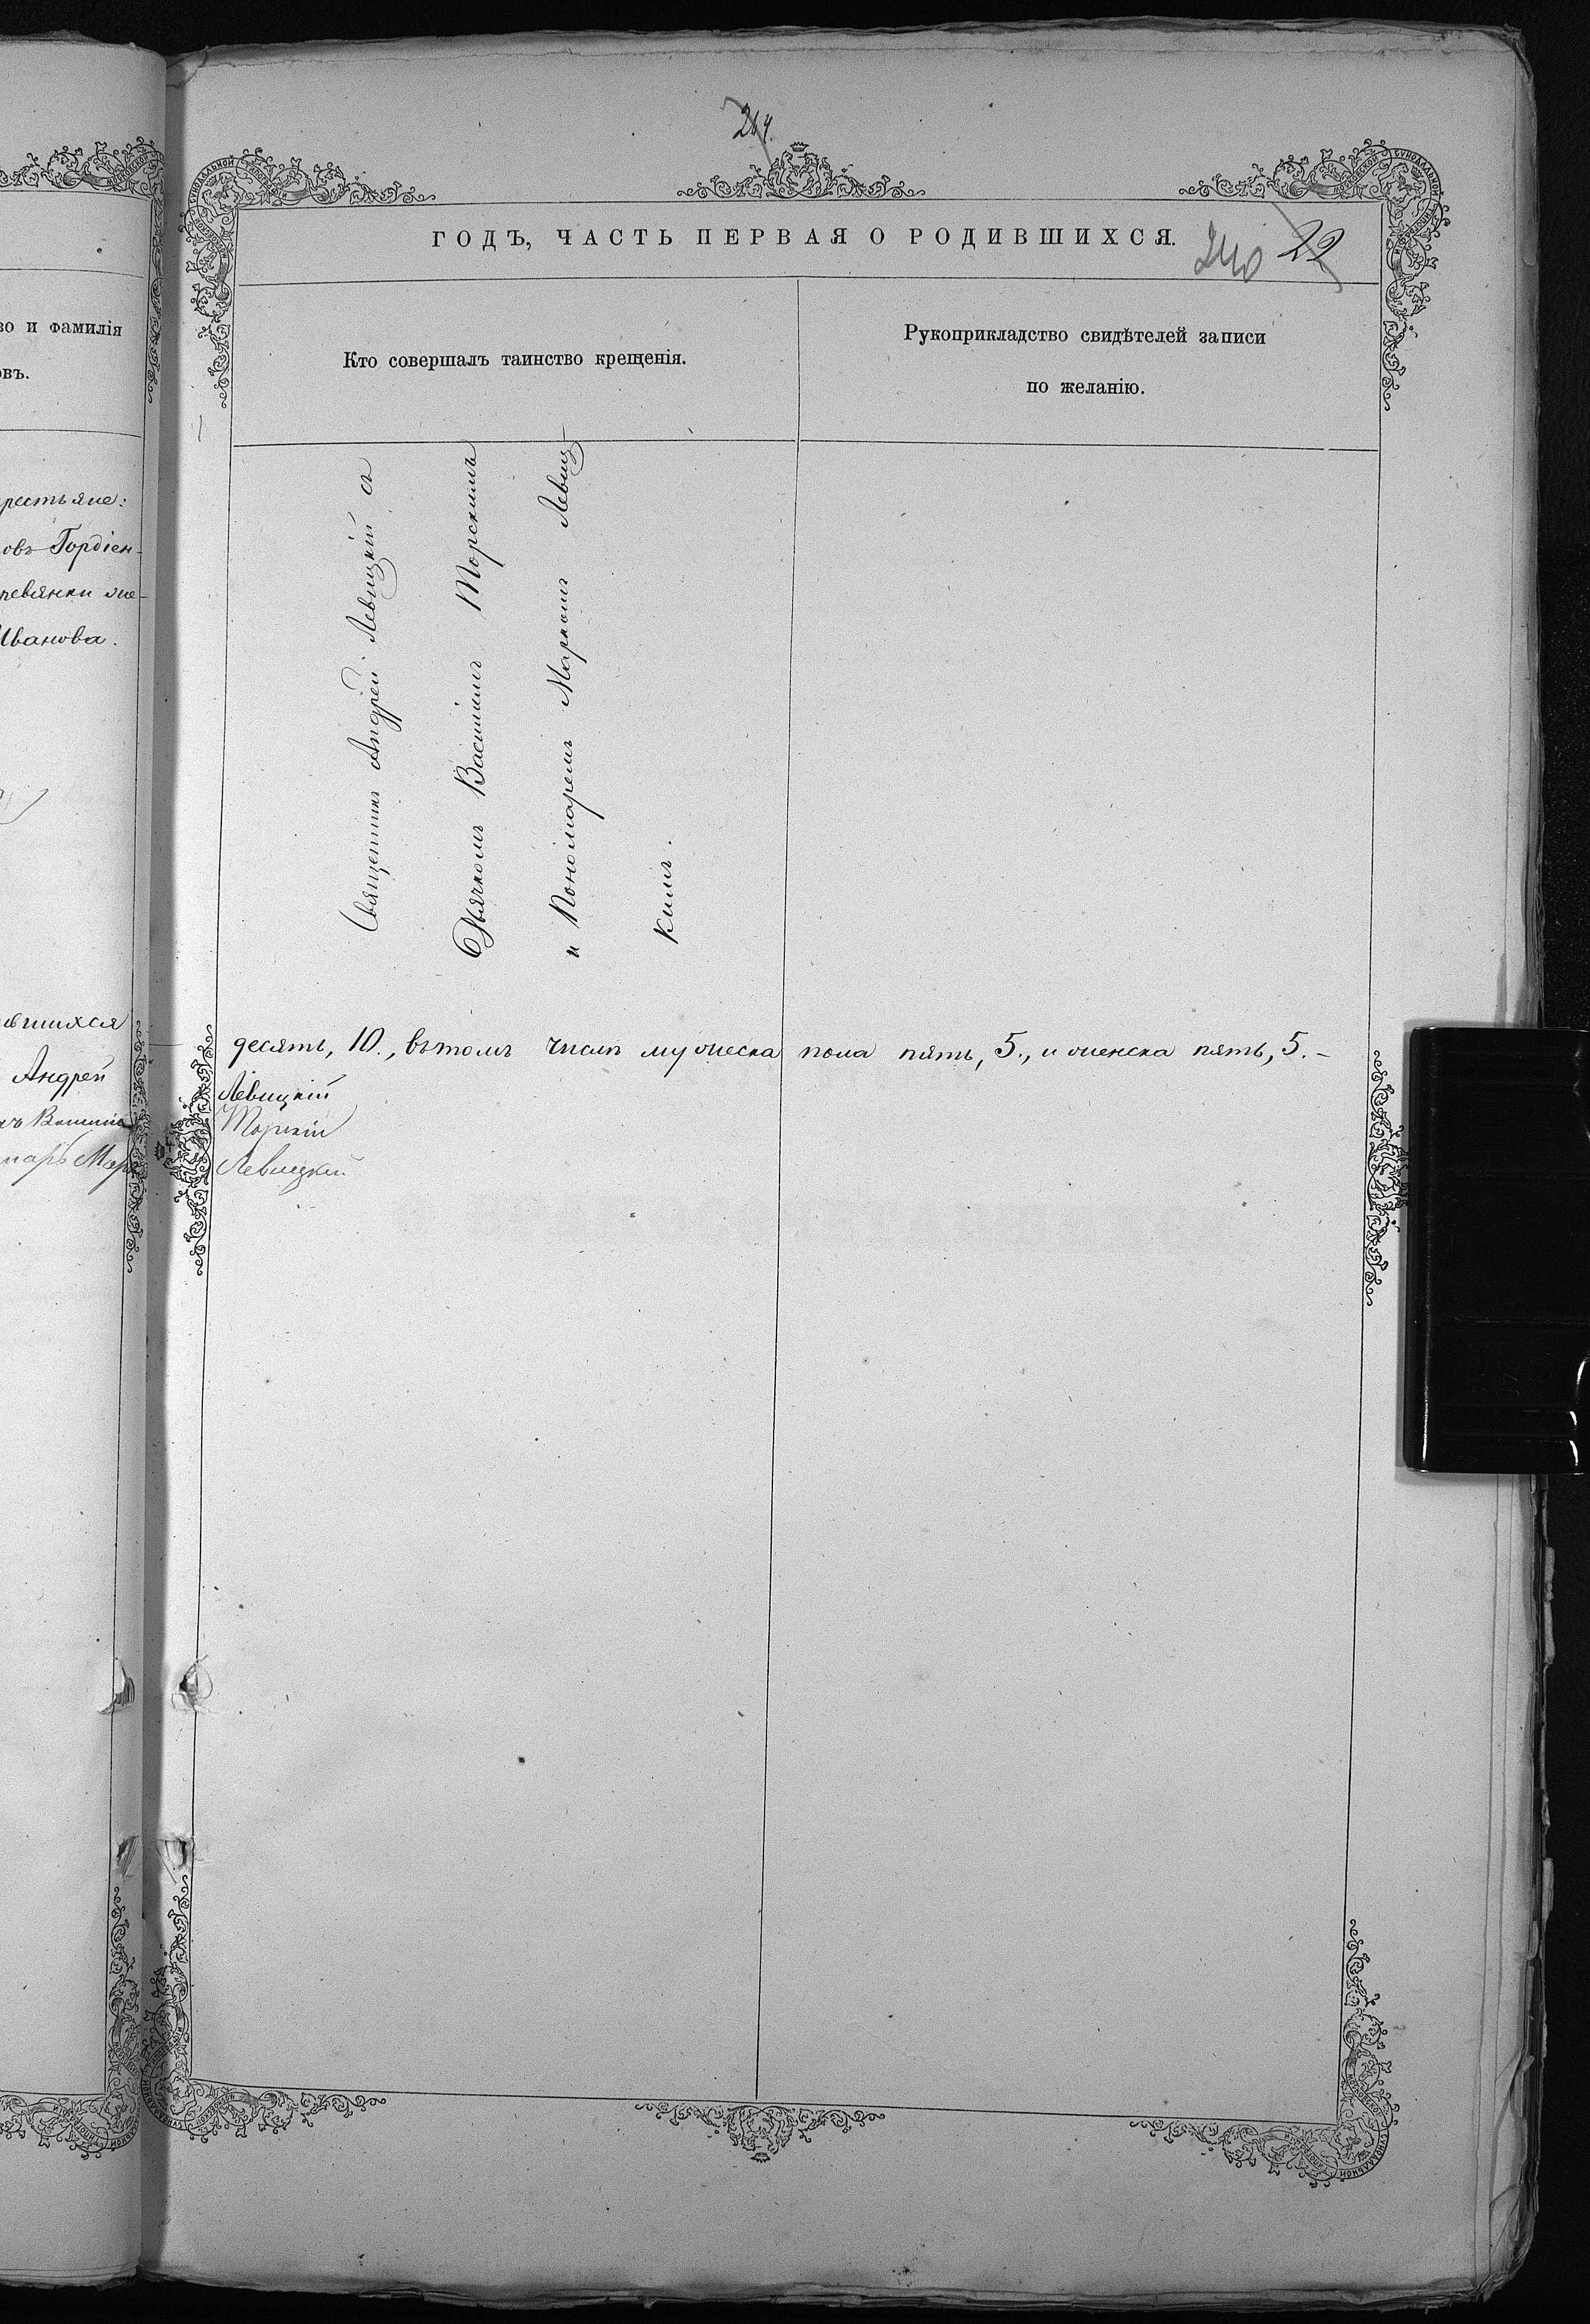 264.
ГОДЪ, ЧАСТЬ ПЕРВАЯ О РОДИВШИХСЯ.
240 29
во и фамилія
овъ.
Кто совершалъ таинство крещенія.
Рукоприкладство свидѣтелей записи
по желанію.
рестьяне:
овъ Гордіен-
Иванова.
Священникъ Андрей Левицкій съ
Дьячкомъ Василіемъ Торскимъ
и Пономаремъ Маркомъ Левиц-
кимъ.
вшихся
десять, 10., въ томъ числѣ мужеска пола пять, 5., и женска пять, 5. –
Андрей
Левицкій
Торскій
марь Марк
Левицкій